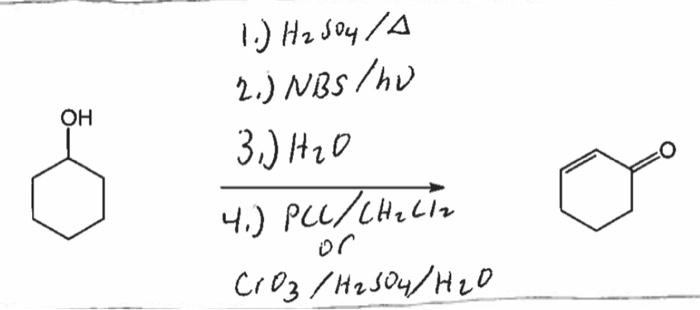 1.) H2SO4/Δ
2.) NBS/hν
OH
O
3.) H2O
4.) PCC/CH2Cl2
or
CrO3/H2SO4/H2O